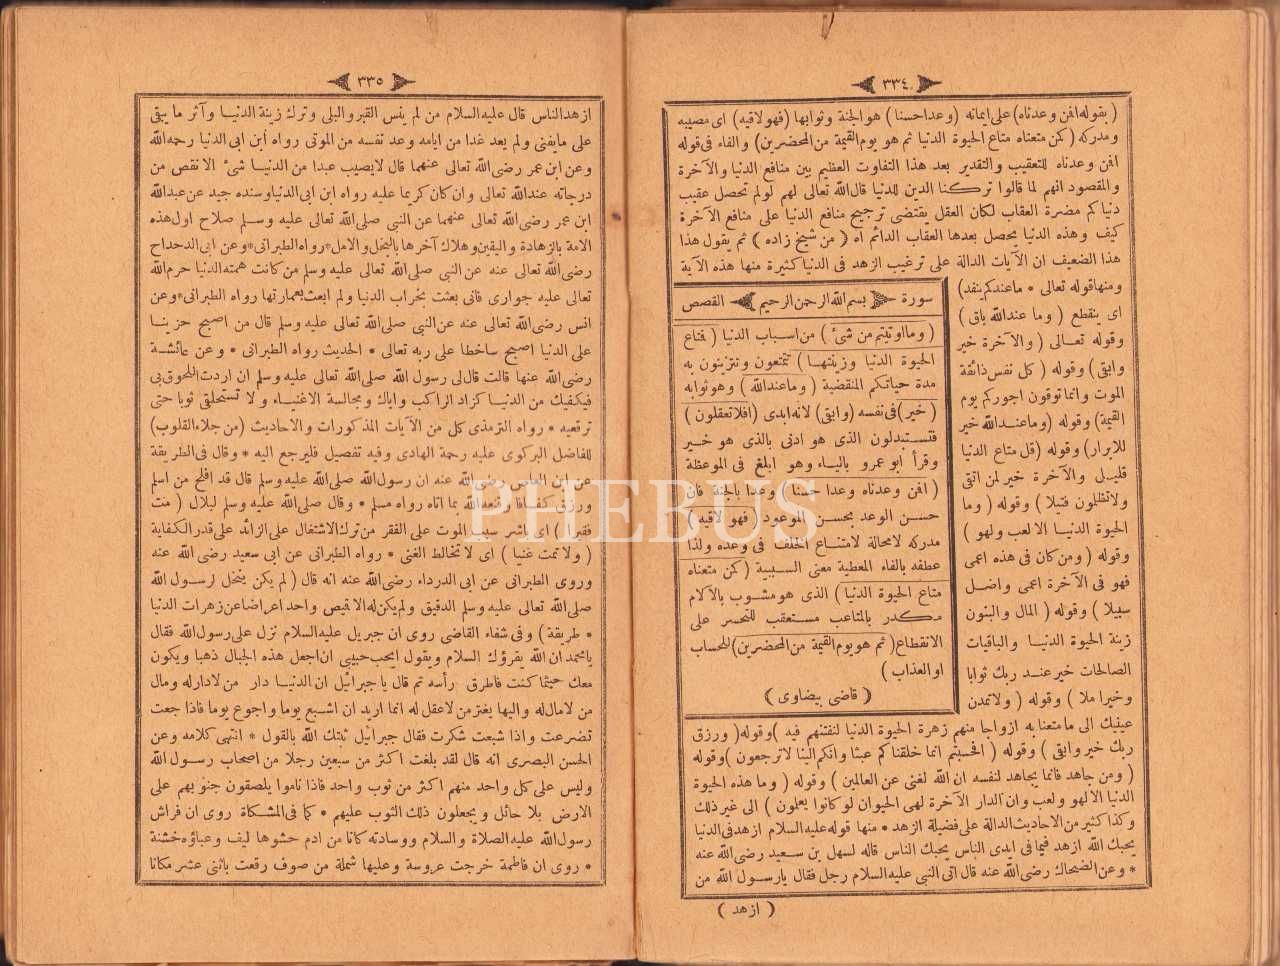 ٣٣٤
( بقوله افمن وعدناه) على ايمانه (وعدا حسنا) هو الجنة وثوابها (فهو لاقيه) اى مصيبه
ومدركه (كمن متعناه متاع الحيوة الدنيا ثم هو يوم القيمة من المحضرين) والفاء فى قوله
افمن وعدناه للتعقيب والتقدير بعد هذا التفاوت العظيم بين منافع الدنيا والآخرة
والمقصود انهم لما قالوا تركنا الدين للدنيا قال الله تعالى لهم لولم تحصل عقيب
دنياكم مضرة العقاب لكان العقل يقتضى ترجيح منافع الدنيا على منافع الآخرة
كيف وهذه الدنيا يحصل بعدها العقاب الدائم اه ( من شيخ زاده ) ثم يقول هذا
هذا الضعيف ان الآيات الدالة على ترغيب الزهد فى الدنيا كثيرة منها هذه الآية
ومنها قوله تعالى * ماعندكم ينفد)
اى ينقطع ( وما عند الله باق )
وقوله تعالى ( والآخرة خير
وابقى ) وقوله ( كل نفس ذائقة
الموت وانما توفون اجوركم يوم
القيمة) وقوله (وما عند الله خير
للابرار) وقوله (قل متاع الدنيا
قليل والآخرة خير لمن اتقى
ولا تظلمون فتيلا ) وقوله ( وما
الحيوة الدنيا الا لعب ولهو )
وقوله ( ومن كان فى هذه اعمى
فهو فى الآخرة اعمى واضل
سبيلا ) وقوله ( المال والبنون
زينة الحيوة الدنيا والباقيات
الصالحات خير عند ربك ثوابا
وخير املا ) وقوله ( ولا تمدن
سورة بسم الله الرحمن الرحيم القصص
( وما اوتيتم من شئ ) من اسباب الدنيا ( فتاع
الحيوة الدنيا وزينتها ) تتمتعون وتتزينون به
مدة حياتكم المنقضية ( وما عند الله ) وهو ثوابه
( خير) فى نفسه (وابقى) لانه ابدى (افلا تعقلون )
فتستبدلون الذى هو ادنى بالذى هو خير
وقرأ ابو عمرو بالياء وهو ابلغ فى الموعظة
( افمن وعدناه وعدا حسنا ) وعدا بالجنة فان
حسن الوعد بحسن الموعود ( فهو لاقيه )
مدركه لا محالة لامتناع الخلف فى وعده ولذا
عطفه بالفاء المعطية معنى السببية ( كمن متعناه
متاع الحيوة الدنيا ) الذى هو مشوب بالآلام
مكدر بالمتاعب مستعقب للتحسر على
الانقطاع( ثم هو يوم القيمة من المحضرين) للحساب
او العذاب )
( قاضى بيضاوى )
عينيك الى ما متعنا به ازواجا منهم زهرة الحيوة الدنيا لنفتنهم فيه ) وقوله ( ورزق
ربك خير وابقى ) وقوله ( افحسبتم انما خلقناكم عبثا وانكم الينا لا ترجعون ) وقوله
( ومن جاهد فانما يجاهد لنفسه ان الله لغنى عن العالمين ) وقوله ( وما هذه الحيوة
الدنيا الا لهو ولعب وان الدار الآخرة لهى الحيوان لو كانوا يعلمون ) الى غير ذلك
وكذا كثير من الاحاديث الدالة على فضيلة الزهد * منها قوله عليه السلام ازهد فى الدنيا
يحبك الله ازهد فيما فى ايدى الناس يحبك الناس قاله لسهل بن سعيد رضى الله عنه
* وعن الضحاك رضى الله عنه قال اتى النبى عليه السلام رجل فقال يا رسول الله من
( ازهد )
٣٣٥
ازهد الناس قال عليه السلام من لم ينس القبر والبلى وترك زينة الدنيا وآثر ما يبقى
على ما يفنى ولم يعد غدا من ايامه وعد نفسه من الموتى رواه ابن ابى الدنيا رحمه الله
وعن ابن عمر رضى الله تعالى عنهما قال لا يصيب عبدا من الدنيا شئ الا نقص من
درجاته عند الله تعالى وان كان كريما عليه رواه ابن ابى الدنيا وسنده جيد عن عبد الله
ابن عمر رضى الله تعالى عنهما عن النبى صلى الله تعالى عليه وسلم صلاح اول هذه
الامة بالزهادة واليقين وهلاك آخرها بالبخل والامل * رواه الطبرانى * وعن ابى الدحداح
رضى الله تعالى عنه عن النبى صلى الله تعالى عليه وسلم من كانت همته الدنيا حرم الله
تعالى عليه جوارى فانى بعثت بخراب الدنيا ولم ابعث بعمارتها رواه الطبرانى * وعن
انس رضى الله تعالى عنه عن النبى صلى الله تعالى عليه وسلم قال من اصبح حزينا
على الدنيا اصبح ساخطا على ربه تعالى * الحديث رواه الطبرانى * وعن عائشة
رضى الله عنها قالت قال لى رسول الله صلى الله تعالى عليه وسلم ان اردت اللحوق بى
فيكفيك من الدنيا كزاد الراكب واياك ومجالسة الاغنياء ولا تستخلقى ثوبا حتى
ترقعيه * رواه الترمذى كل من الآيات المذكورات والاحاديث (من جلاء القلوب)
للفاضل البركوى عليه رحمة الهادى وفيه تفصيل فليرجع اليه * وقال فى الطريقة
عن ابن العاص رضى الله عنه ان رسول الله صلى الله عليه وسلم قال قد افلح من اسلم
ورزق كفافا وقنعه الله بما اتاه رواه مسلم * وقال صلى الله عليه وسلم لبلال ( مت
فقيرا ) اى باشر سبب الموت على الفقر من ترك الاشتغال على الزائد على قدر الكفاية
( ولا تمت غنيا ) اى لا تخالط الغنى * رواه الطبرانى عن ابى سعيد رضى الله عنه
وروى الطبرانى عن ابى الدرداء رضى الله عنه انه قال ( لم يكن ينخل لرسول الله
صلى الله تعالى عليه وسلم الدقيق ولم يكن له الا قميص واحد اعراضا عن زهرات الدنيا
* طريقة ) وفى شفاء القاضى روى ان جبريل عليه السلام نزل على رسول الله فقال
يا محمد ان الله يقرؤك السلام ويقول ايحب حبيبى ان اجعل هذه الجبال ذهبا ويكون
معك حيثما كنت فاطرق رأسه ثم قال يا جبرائيل ان الدنيا دار من لا دار له ومال
من لا مال له واليها يغتر من لا عقل له انما اريد ان اشبع يوما واجوع يوما فاذا جعت
تضرعت واذا شبعت شكرت فقال جبرائيل ثبتك الله بالقول * انتهى كلامه وعن
الحسن البصرى انه قال لقد بلغت اكثر من سبعين رجلا من اصحاب رسول الله
وليس على كل واحد منهم اكثر من ثوب واحد فاذا ناموا يلصقون جنوبهم على
الارض بلا حائل ويجعلون ذلك الثوب عليهم * كما فى المشكاة روى ان فراش
رسول الله عليه الصلاة والسلام ووسادته كانا من ادم حشوها ليف وعباؤه خشنة
* روى ان فاطمة خرجت عروسة وعليها شملة من صوف رقعت باثنى عشر مكانا
PHEBUS